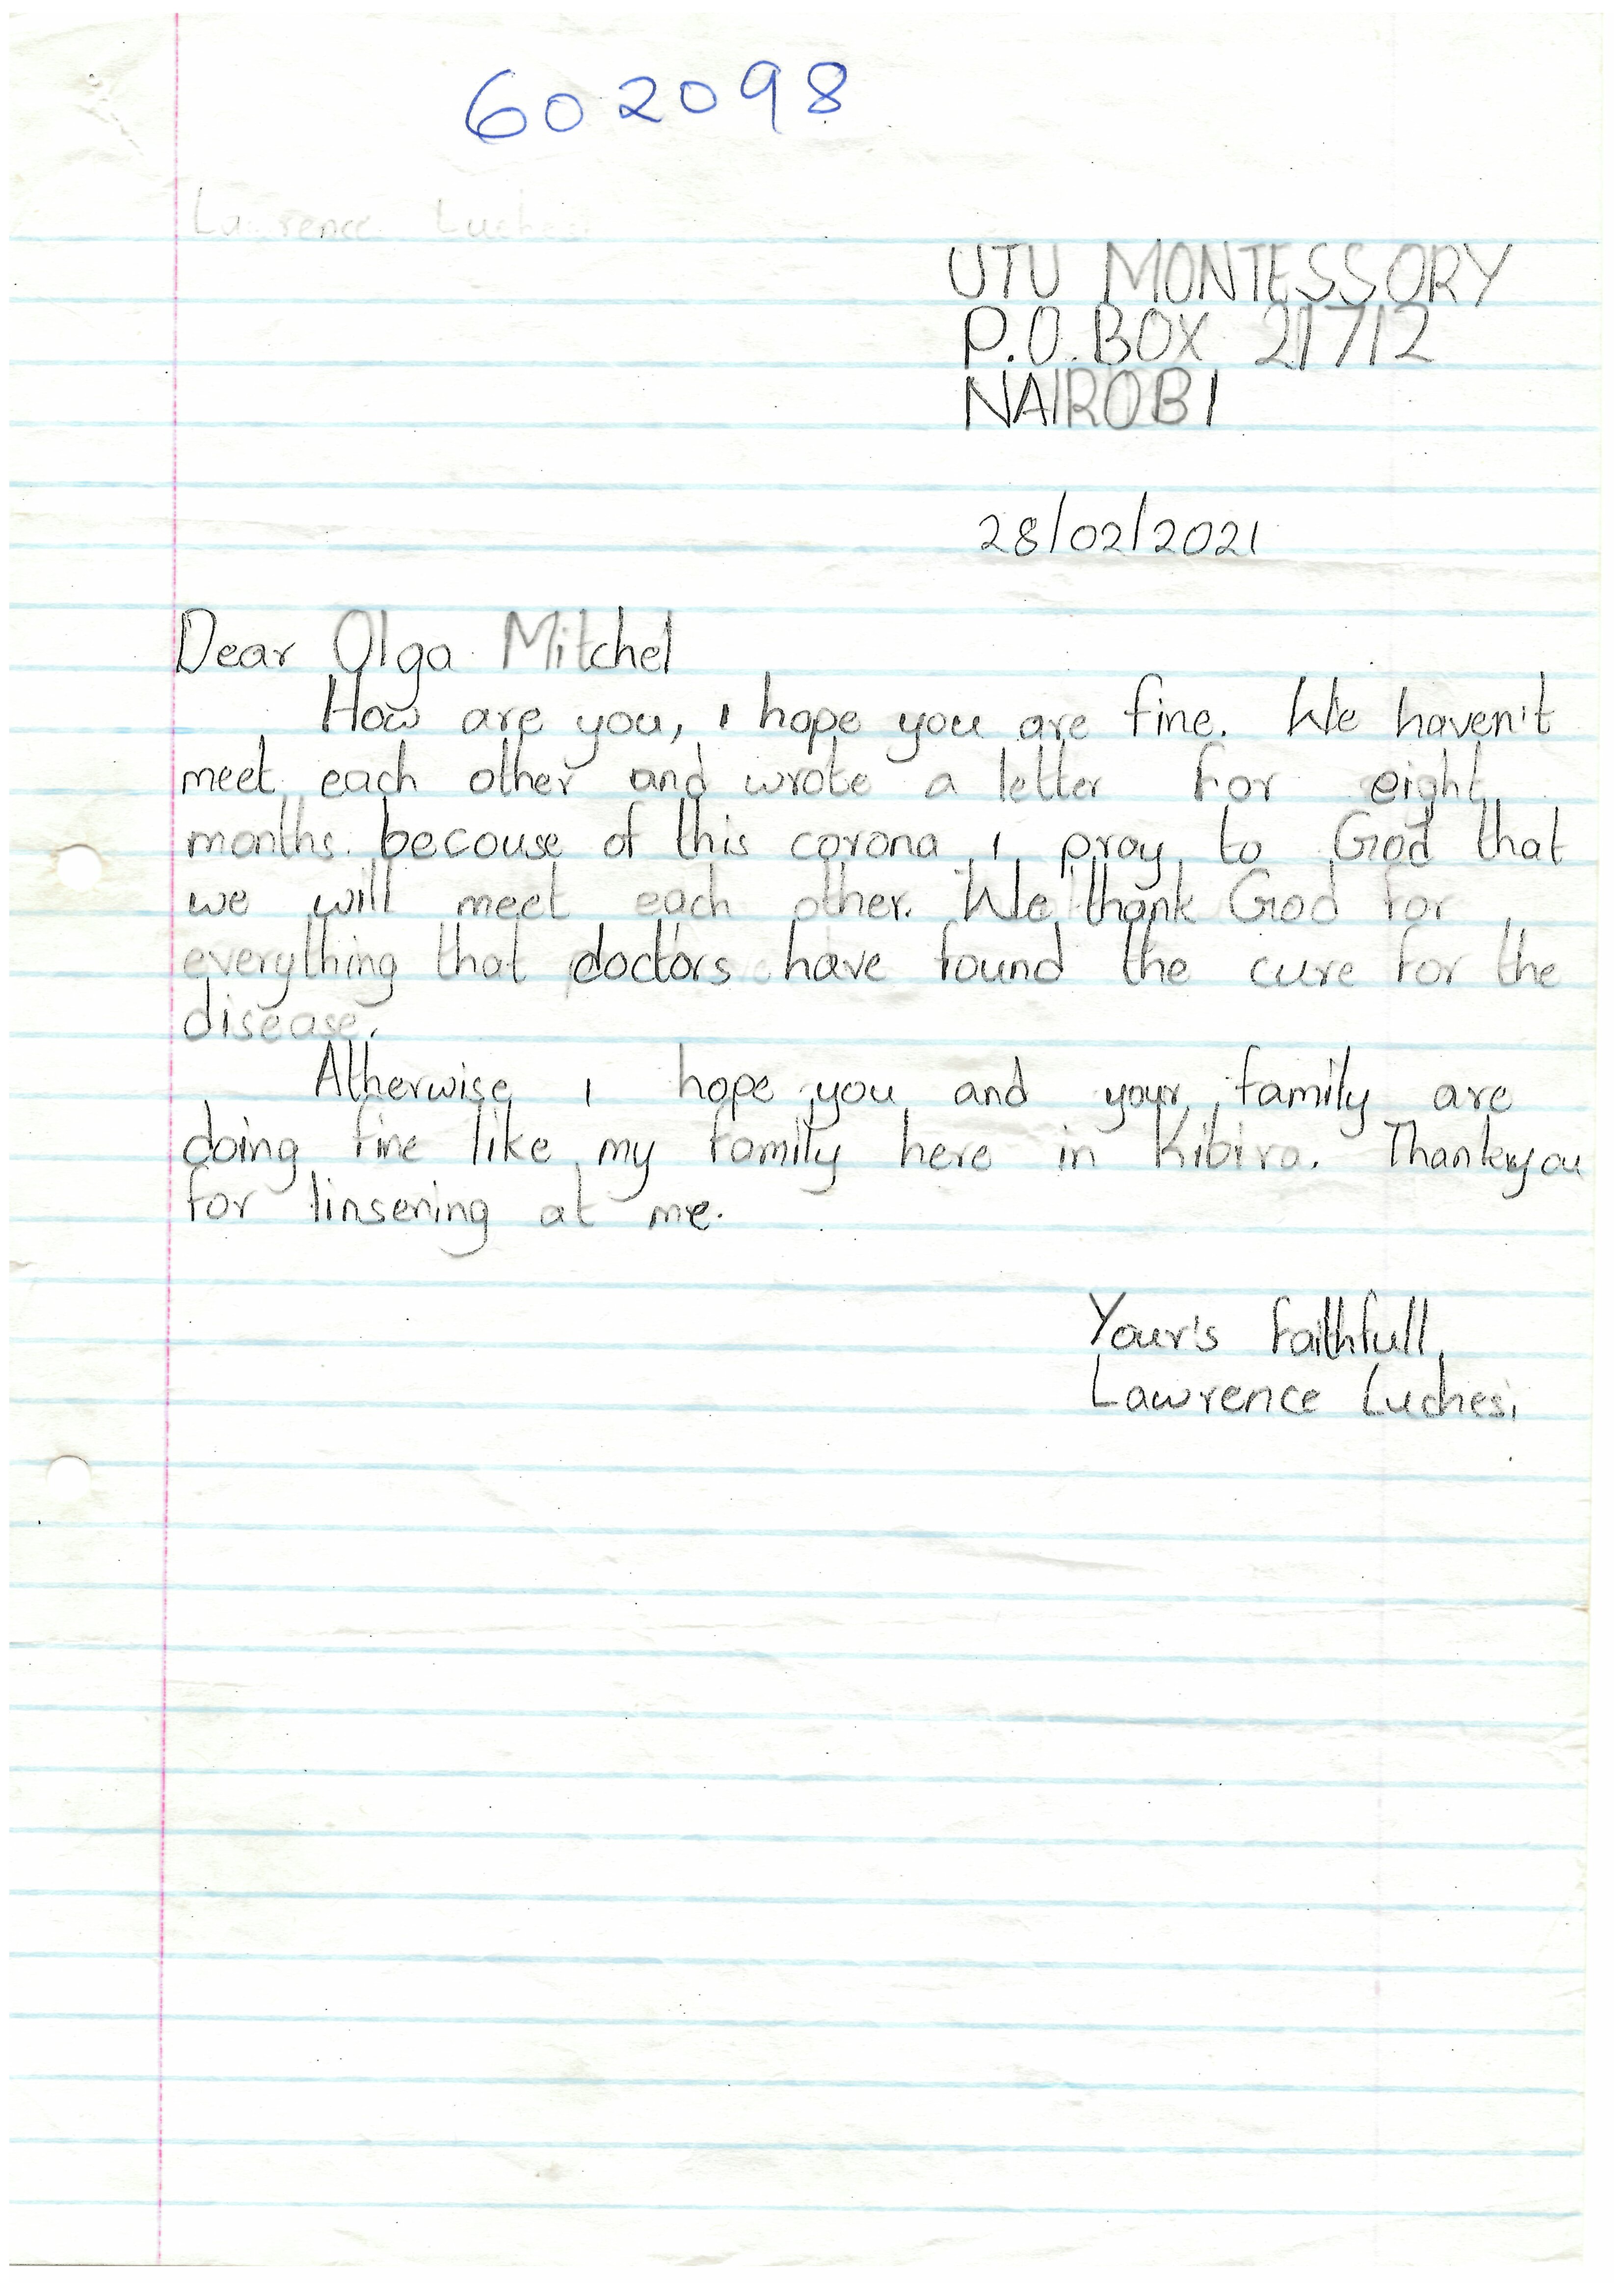 602098
Lawrence Luchesi
UTU MONTESSORY
P.O. BOX 21712
NAIROBI
28/02/2021
Dear Olga Mitchel
How are you, I hope you are fine. We haven't
meet each other and wrote a letter for eight
months. becouse of this corona I pray to God that
we will meet each other. We thank God for
everything that doctors have found the cure for the
disease.
Atherwise I hope you and your family are
doing fine like my family here in Kibira. Thankyou
for linsering at me.
Your's faithfull,
Lawrence Luchesi